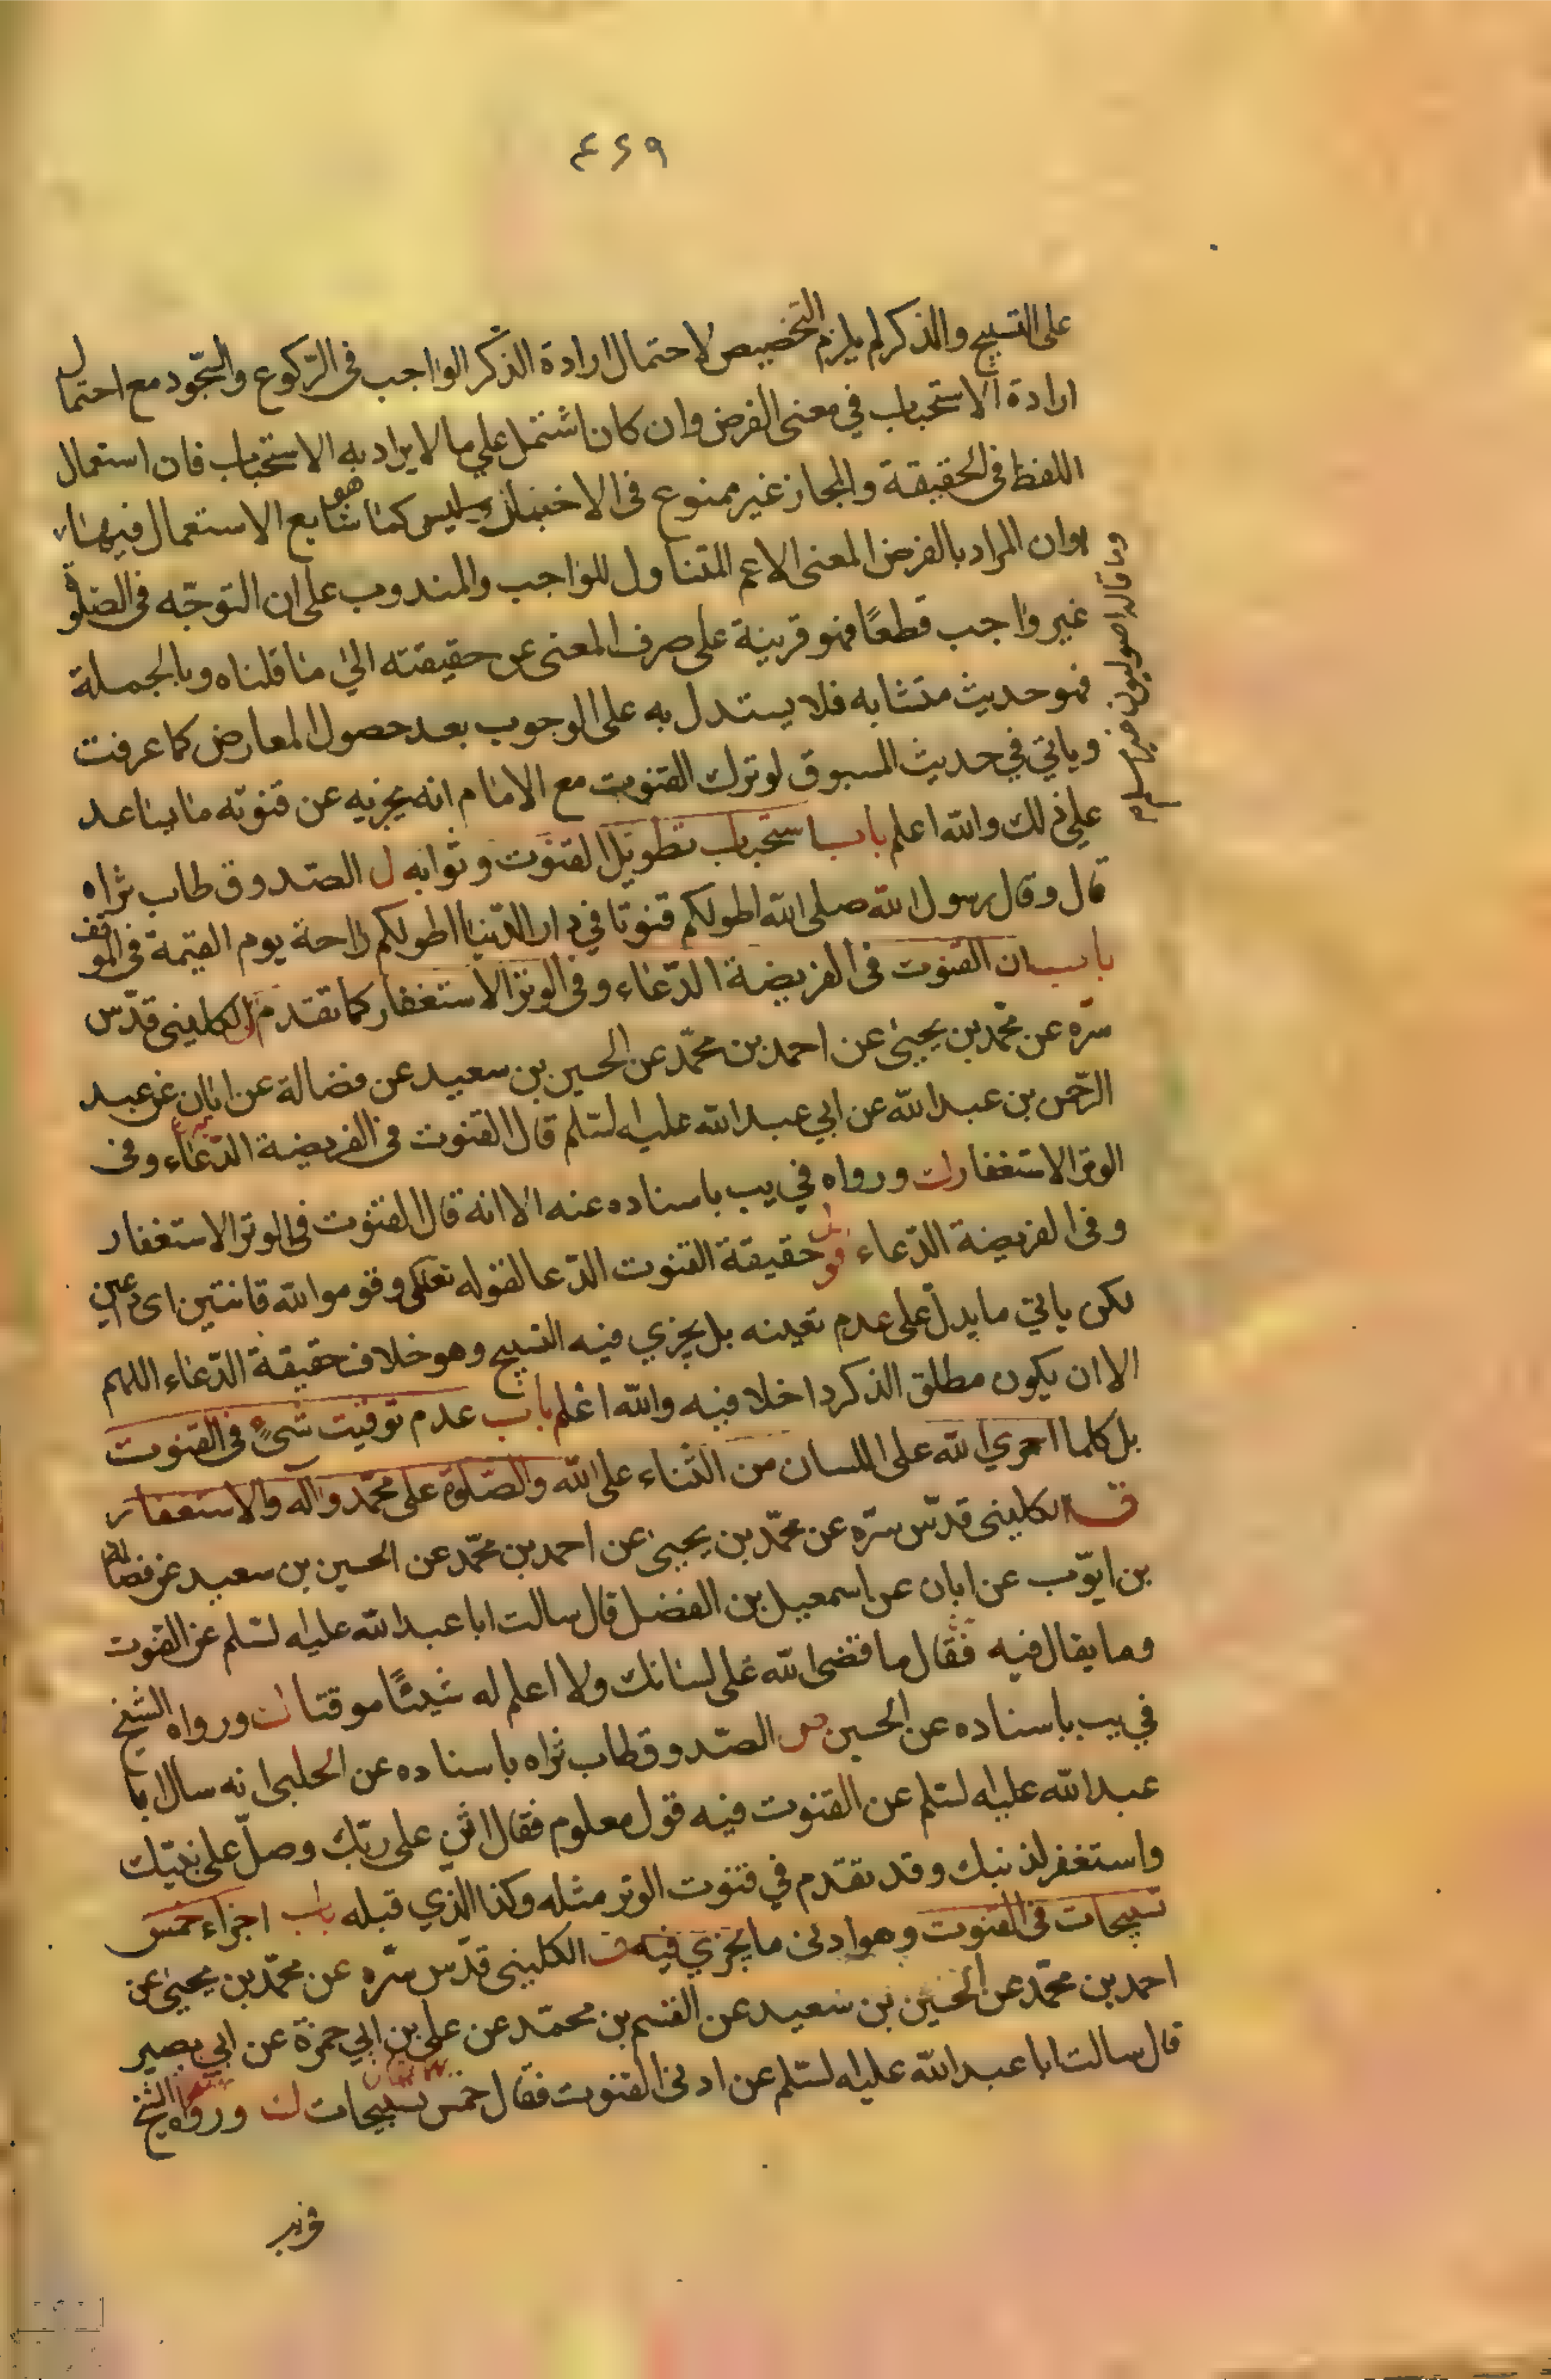 ٤٦٩
على التسبيح والذكر لم يلزم التخصيص لاحتمال ارادة الذكر الواجب فى الرّكوع والسّجود مع احتمال
ارادة الاستحباب في معنى الفرض وان كان اشتمل على ما لا يراد به الاستحباب فان استعمال
اللفظ فى الحقيقة والمجاز غير ممنوع فى الاخبار وليس كما هو شايع الاستعمال فيها
وان المراد بالفرض المعنى الاعم المتناول للواجب والمندوب على ان التوجّه فى الصلوة
غير واجب قطعًا فهو قرينة على صرف المعنى عن حقيقته الى ما قلناه وبالجملة
فهو حديث متشابه فلا يستدل به على الوجوب بعد حصول المعارض كما عرفت
وياتي في حديث المسبوق لو ترك القنوت مع الامام انه يجزيه عن قنوته ما يساعد
على ذلك والله اعلم باب استحباب تطويل القنوت وثوابه ل الصدوق طاب ثراه
قال وقال رسول الله صلى الله اطولكم قنوتا في دار الدّنيا اطولكم راحة يوم القيمة فى الموقف
باب ان القنوت فى الفريضة الدّعاء وفى الوتر الاستغفار كما تقدم الكلينى قدّس
سّره عن محمّد بن يحيى عن احمد بن محمّد عن الحسين بن سعيد عن فضالة عن ابان عن عبد
الرّحمن بن عبد الله عن ابي عبد الله عليه لسّلم قال القنوت فى الفريضة الدّعاء وفى
الوتر الاستغفار ورواه في يب باسناده عنه الا انه قال القنوت فى الوتر الاستغفار
وفى الفريضة الدّعاء حقيقة القنوت الدّعا لقوله تعالى وقوموا لله قانتين اى داعين
لكن ياتي ما يدلّ على عدم تعينه بل يجزي فيه التسبيح وهو خلاف حقيقة الدّعاء اللهم
الا ان يكون مطلق الذكر داخلا فيه والله اعلم باب عدم توقيت شىءٍ فى القنوت
بل كلما اجري الله على اللسان من الثناء على الله والصّلوة على محمّد واله والاستغفار
ق الكلينى قدّس سرّه عن محمّد بن يحيى عن احمد بن محمّد عن الحسين بن سعيد عن فضالة
بن ايّوب عن ابان عن اسمعيل بن الفضل قال سالت ابا عبد الله عليه لسّلم عن القنوت
وما يقال فيه فقال ما قضى الله على لسانك ولا اعلم له شيئًا موقتا ورواه الشيخ
في يب باسناده عن الحسين الصّدوق طاب ثراه باسناده عن الحلبى انه سال ابا
عبد الله عليه لسّلم عن القنوت فيه قول معلوم فقال اثن على ربّك وصلّ على نبيّك
واستغفر لذنبك وقد تقدّم في قنوت الوتر مثله وكذا الذي قبله باب اجزاء خمس
تسبيحات فى القنوت وهو ادنى ما يجزي فيه الكلينى قدّس سّره عن محمّد بن يحيى عن
احمد بن محمّد عن الحسين بن سعيد عن القسم بن محمّد عن على بن ابي حمزة عن ابي بصير
قال سالت ابا عبد الله عليه لسّلم عن ادنى القنوت فقال خمس تسبيحات ورواه الشيخ
في يب